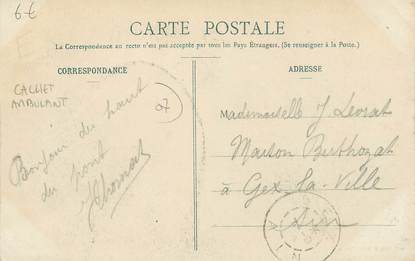 6€
CARTE POSTALE
La Correspondance au recto n'est pas acceptée par tous les Pays Étrangers. (Se renseigner à la Poste.)
CORRESPONDANCE
ADRESSE
CACHET
AMBULANT
07
Bonjour du haut
du pont
JThomas
Mademoiselle J Levrat
Maison Berthozat
à Gex-la-Ville
Ain